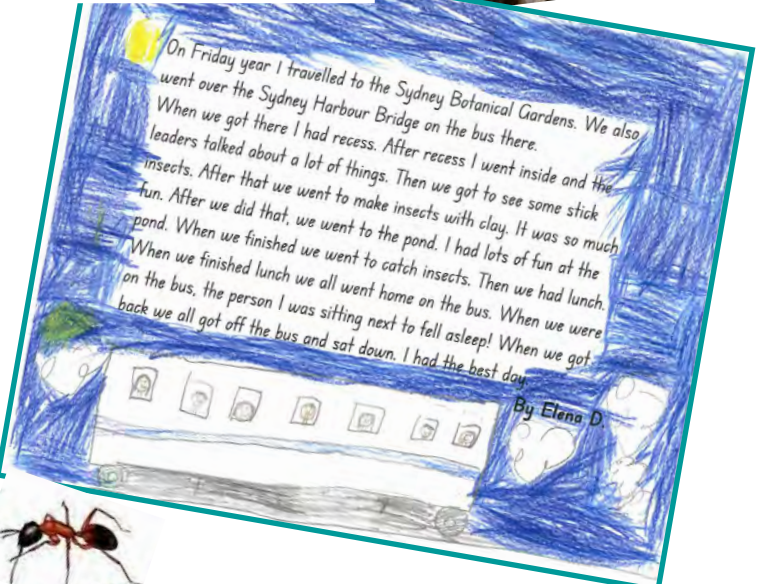 On Friday year I travelled to the Sydney Botanical Gardens. We also
went over the Sydney Harbour Bridge on the bus there.
When we got there I had recess. After recess I went inside and the
leaders talked about a lot of things. Then we got to see some stick
insects. After that we went to make insects with clay. It was so much
fun. After we did that, we went to the pond. I had lots of fun at the
pond. When we finished we went to catch insects. Then we had lunch.
When we finished lunch we all went home on the bus. When we were
on the bus, the person I was sitting next to fell asleep! When we got
back we all got off the bus and sat down. I had the best day.
By Elena D.